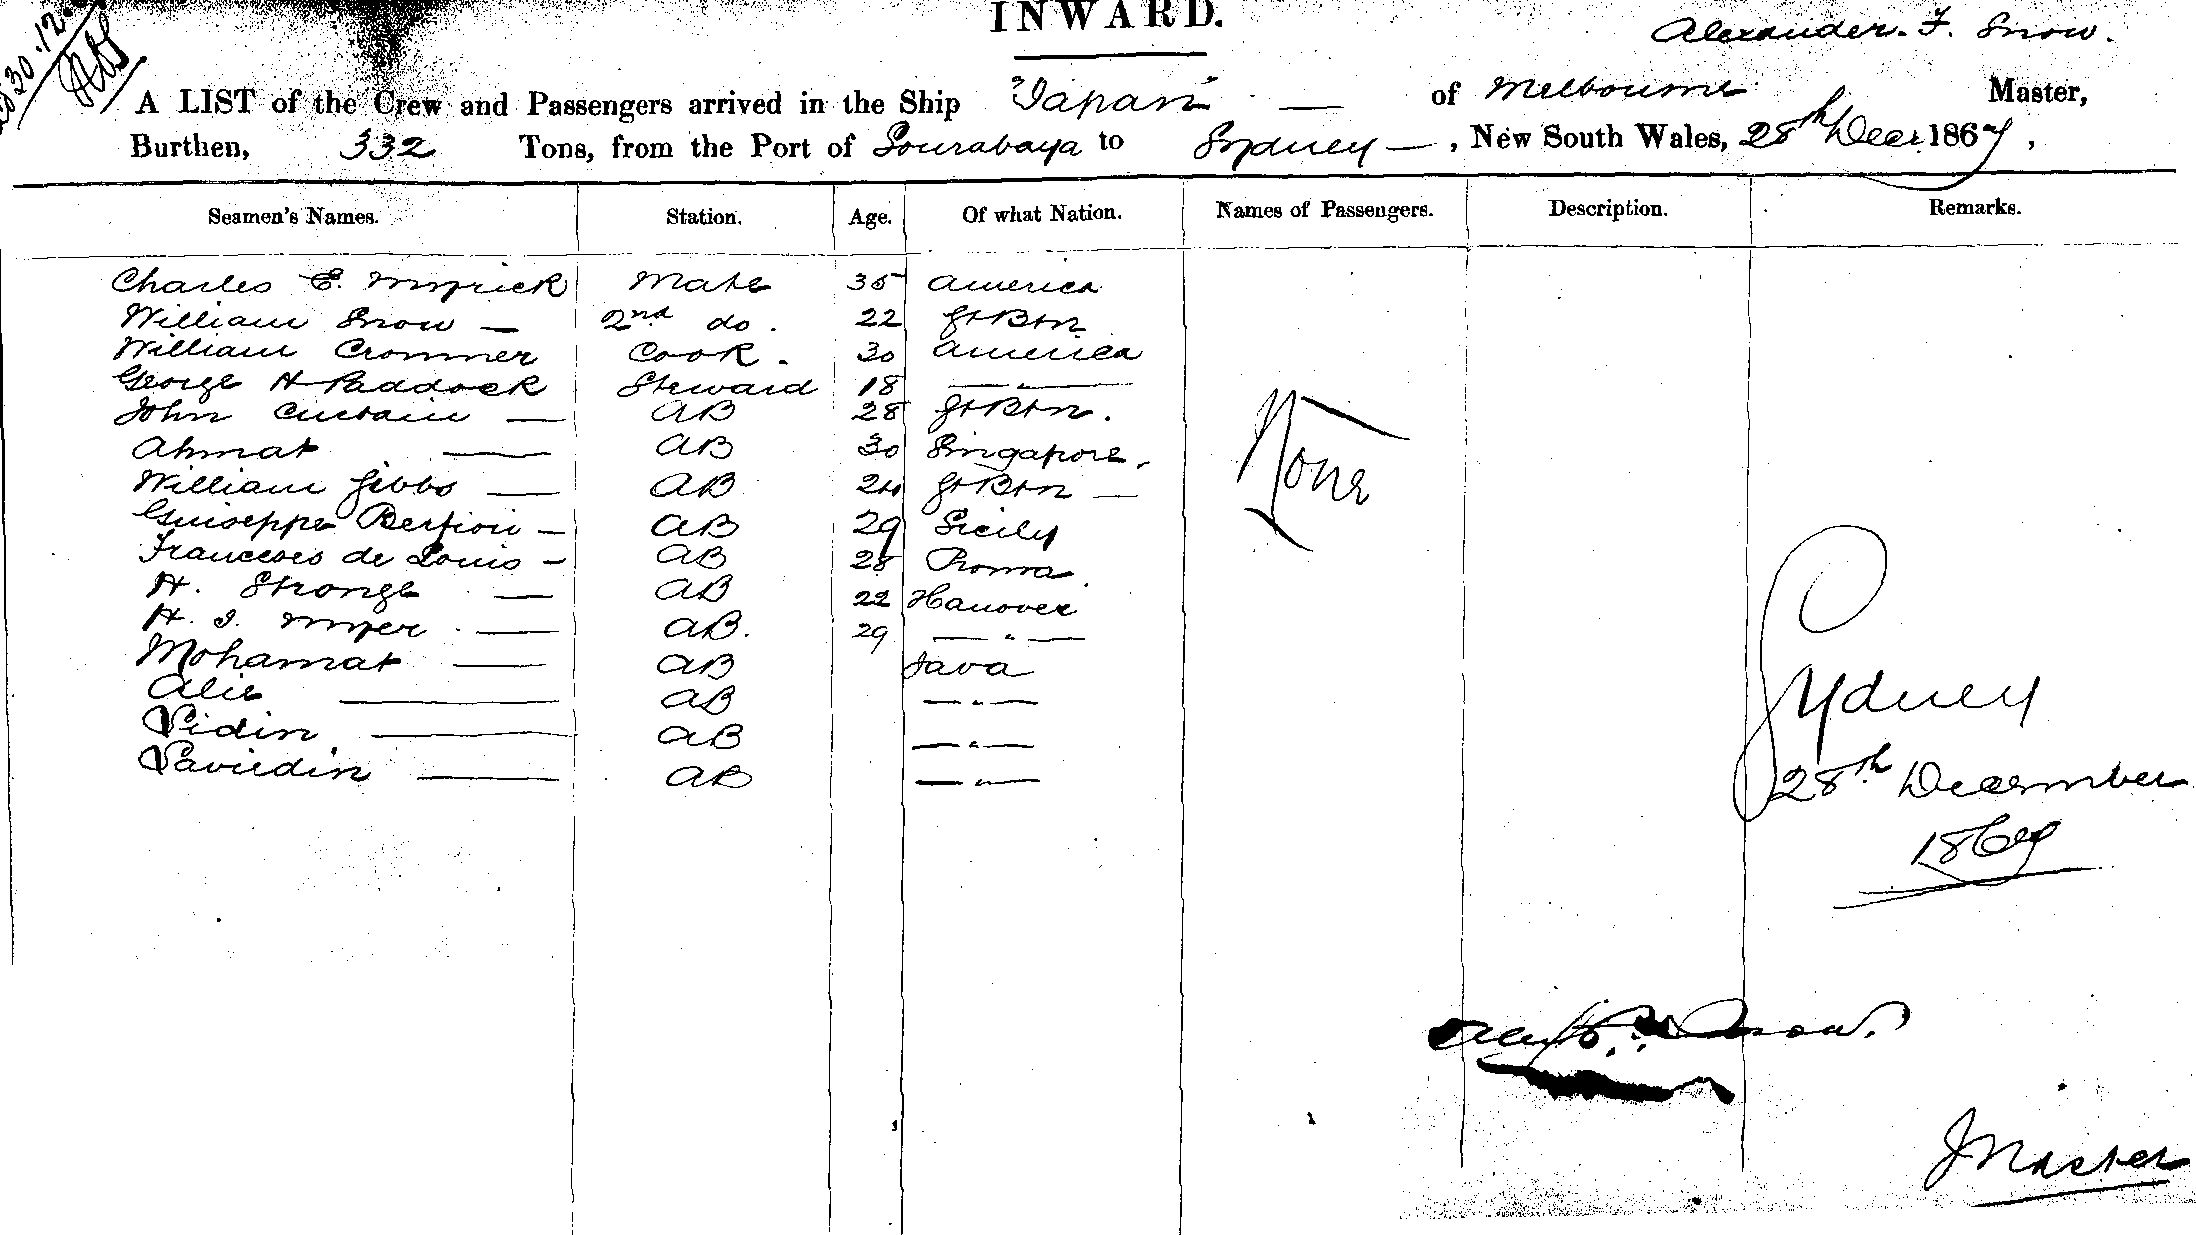 INWARD.
Alexander. F. Snow.
30.12.
A LIST of the Crew and Passengers arrived in the Ship "Japan" — of Melbourne Master,
Burthen, 332 Tons, from the Port of Sourabaya to Sydney —, New South Wales, 28th Decr. 1869,
Seamen's Names. Station. Age. Of what Nation. Names of Passengers. Description. Remarks.
Charles E. Myrick Mate 35 America
William Snow — 2nd do. 22 Gt Btn
William Crommer Cook. 30 America
George H Paddock Steward 18 — " —
John Curtain — AB 28 Gt Btn.
Ahmat — AB 30 Singapore.
William Gibbs — AB 24 Gt Btn —
None
Guiseppe — AB 29 Sicily
de Louis — AB 28 Roma
H. Stronge — AB 22 Hanover
H. I. Myer — AB. 29 — " —
Mohamat — AB Java
Alie — AB — " —
Sidin — AB — " —
Saviedin — AB — " —
Sydney
28th December
1869
Snow.
Master